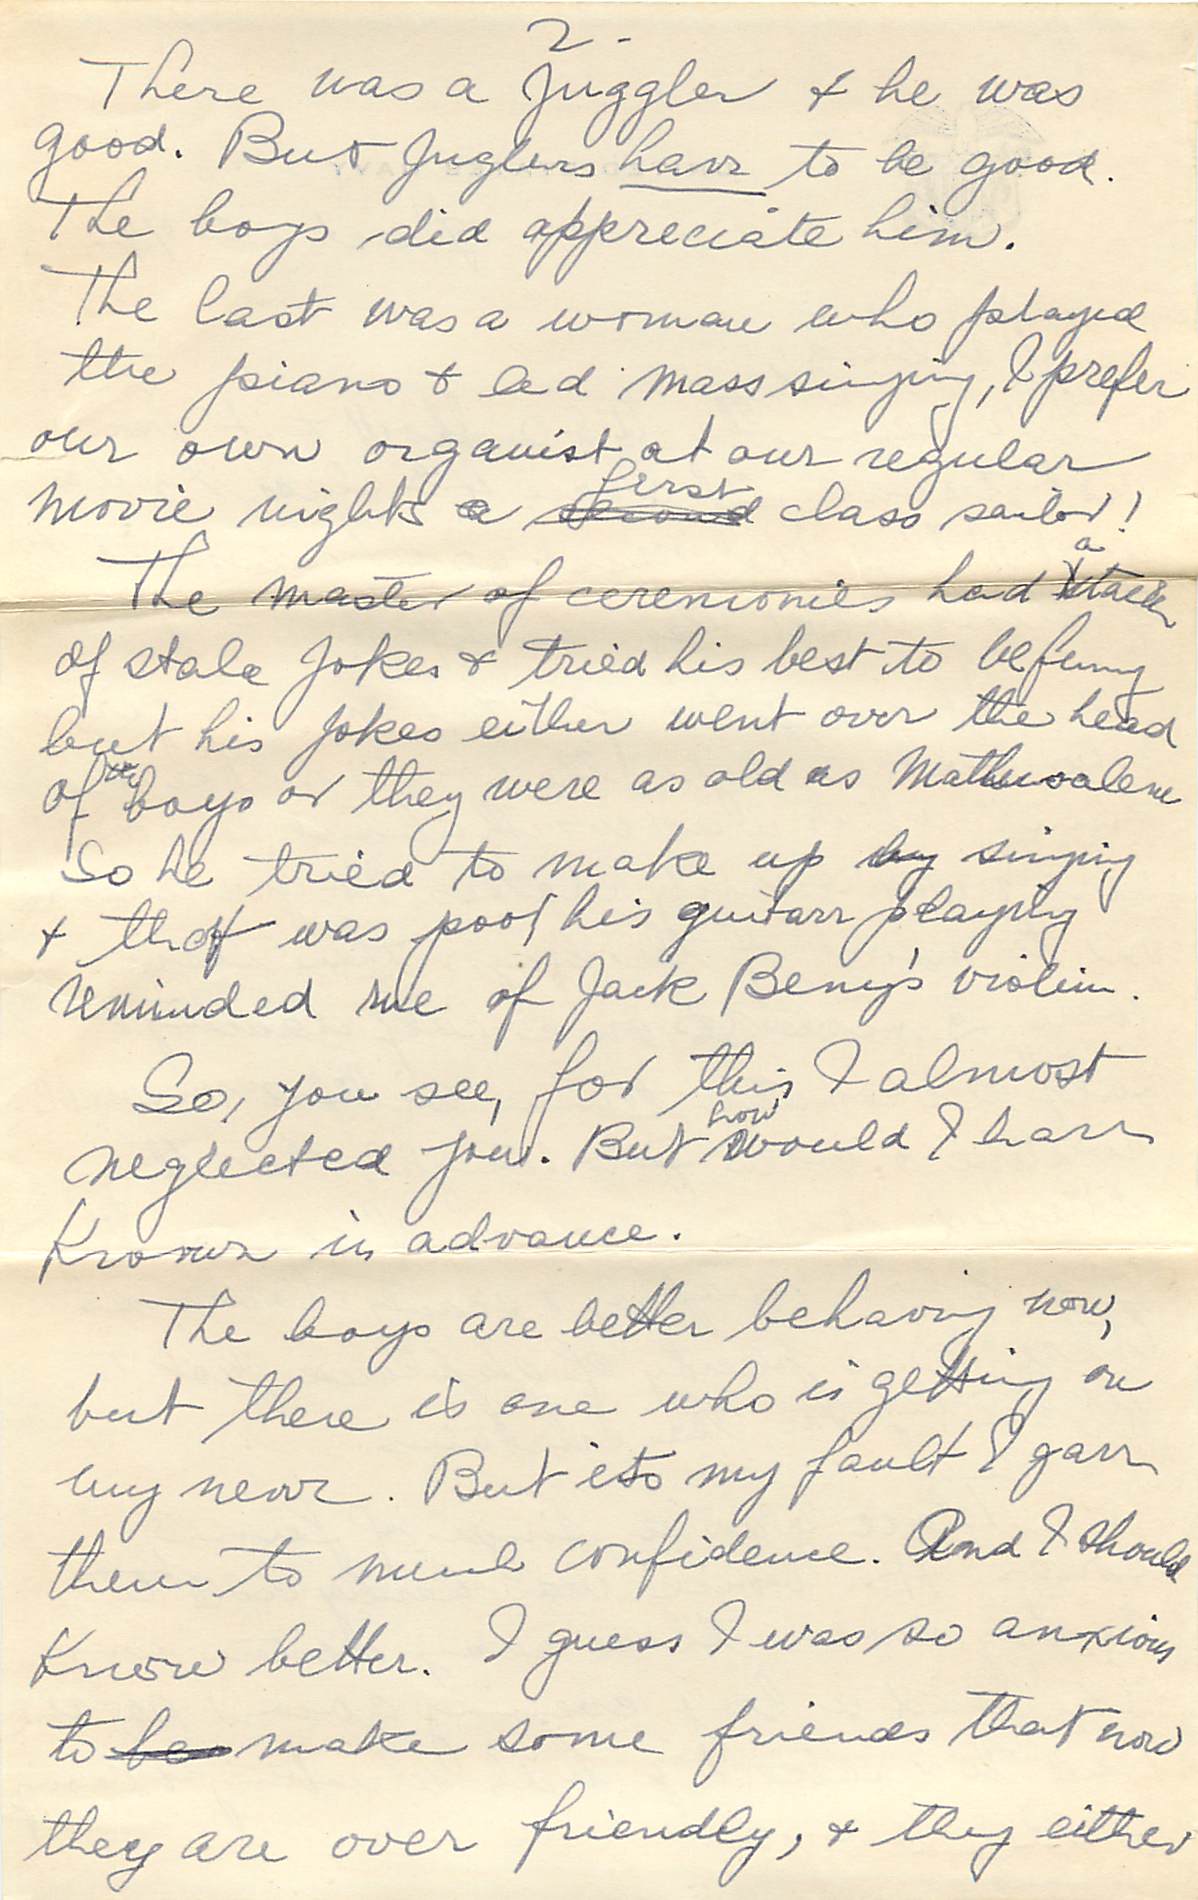 2-
There was a Juggler & he was
good. But Juglers have to be good.
The boys did appreciate him.
The last was a woman who played
the piano & led mass singing, I prefer
our own organist at our regular
movie nights a second first class sailor!
The master of ceremonies had a stack
of stale Jokes & tried his best to be funny
but his Jokes either went over the head
of the boys or they were as old as Mathusalem
So he tried to make up by singing
& that was poor, his guitarr playing
reminded me of Jack Beny's violin.
So, you see, for this I almost
neglected you. But how would I have
Known in advance.
The boys are better behaving now,
but there is one who is getting on
my nerve. But its my fault I gave
them to much confidence. And I should
Know better. I guess I was so anxious
to be make some friends that now
they are over friendly, & they either